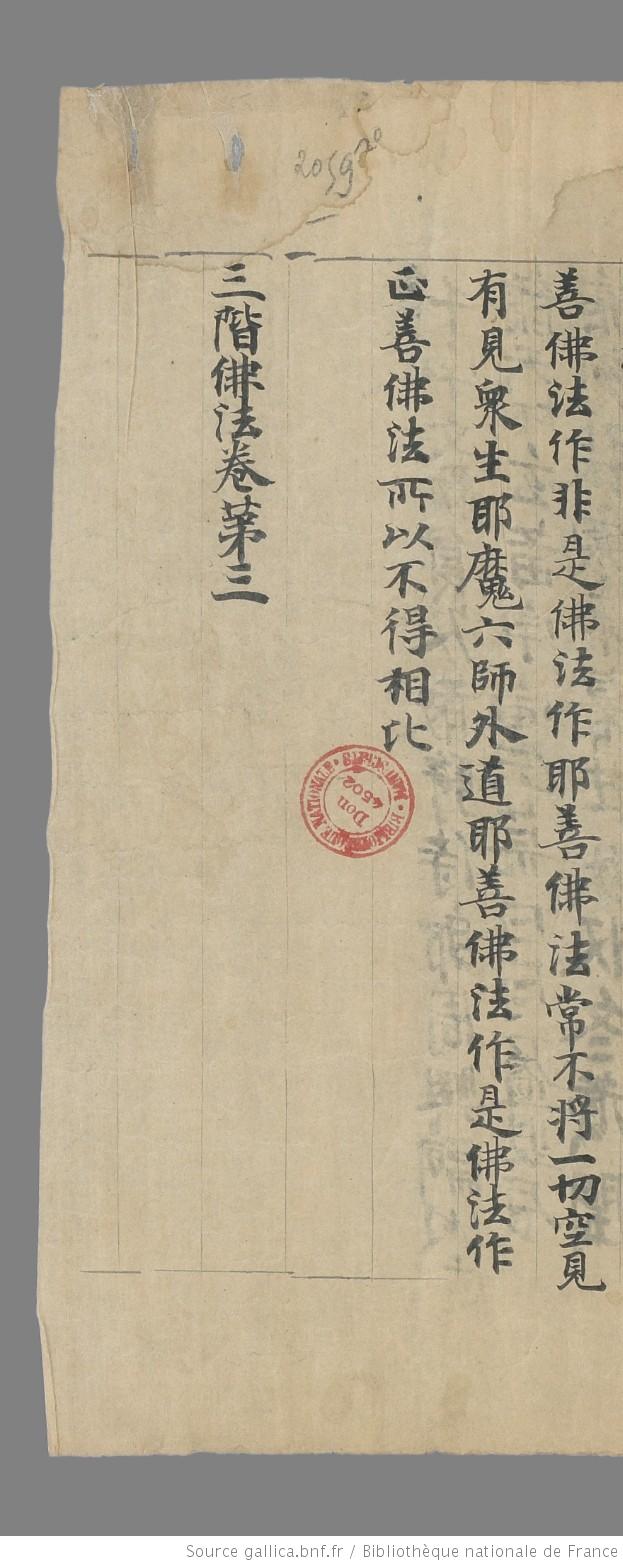 善佛法作非是佛法作耶善佛法常不将一切空見
有見衆生耶魔六師外道耶善佛法作是佛法作
正善佛法所以不得相比
三階佛法卷苐三
2059
BIBLIOTHEQUE NATIONALE • MANUSCRITS •
Don
4502
Source gallica.bnf.fr / Bibliothèque nationale de France